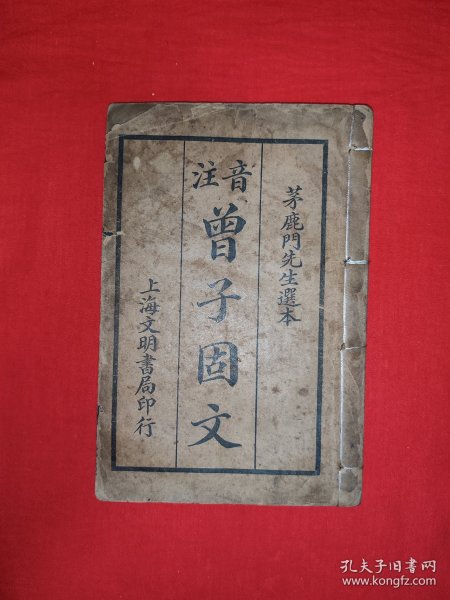 茅鹿門先生選本
音注
曾子固文
上海文明書局印行
孔夫子旧书网
www.kongfz.com